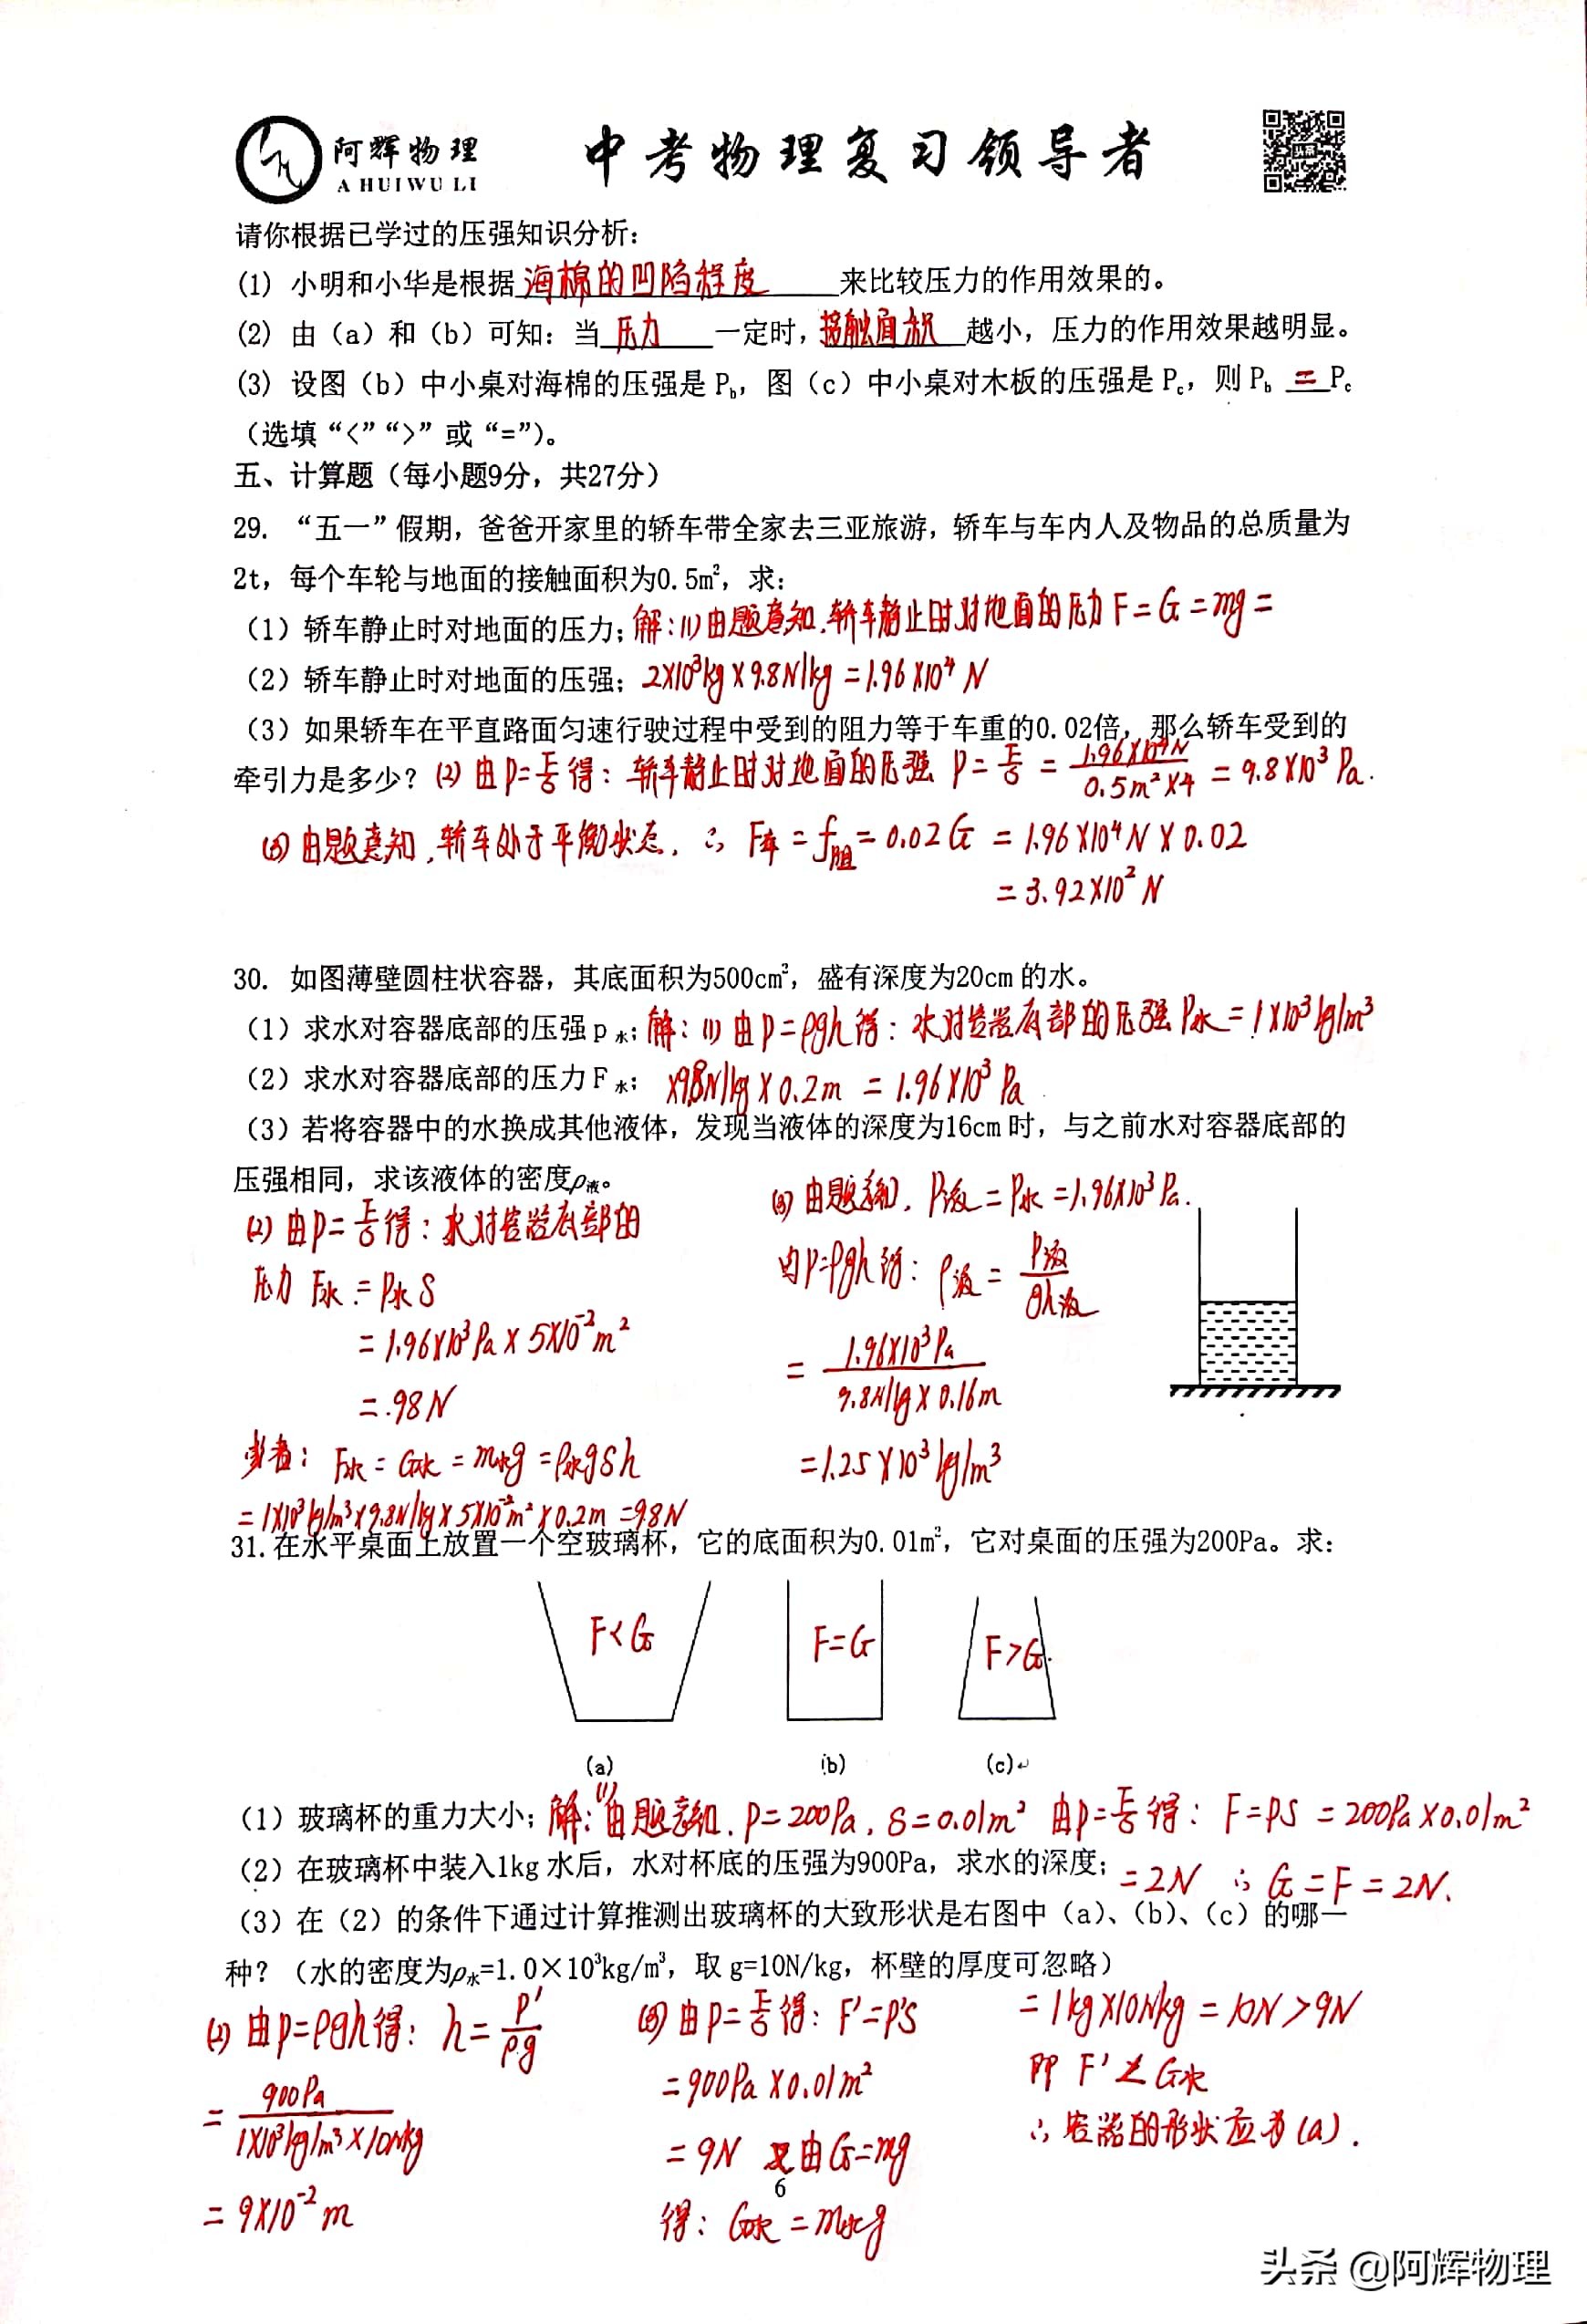 阿辉物理
A HUI WU LI
中考物理复习领导者
头条
请你根据已学过的压强知识分析：
(1) 小明和小华是根据海棉的凹陷程度来比较压力的作用效果的。
(2) 由（a）和（b）可知：当压力一定时，接触面积越小，压力的作用效果越明显。
(3) 设图（b）中小桌对海棉的压强是 P_b，图（c）中小桌对木板的压强是 P_c，则 P_b = P_c
（选填“<”“>”或“=”）。
五、计算题（每小题9分，共27分）
29. “五一”假期，爸爸开家里的轿车带全家去三亚旅游，轿车与车内人及物品的总质量为
2t，每个车轮与地面的接触面积为0.5m²，求：
（1）轿车静止时对地面的压力；解：(1) 由题意知，轿车静止时对地面的压力 F=G=mg=
（2）轿车静止时对地面的压强；2×10³kg×9.8N/kg=1.96×10⁴N
（3）如果轿车在平直路面匀速行驶过程中受到的阻力等于车重的0.02倍，那么轿车受到的
牵引力是多少？(2) 由P=F/S得：轿车静止时对地面的压强 P=F/S=1.96×10⁴N/0.5m²×4=9.8×10³Pa.
(3) 由题意知，轿车处于平衡状态，∴ F牵=f阻=0.02G=1.96×10⁴N×0.02
=3.92×10²N
30. 如图薄壁圆柱状容器，其底面积为500cm²，盛有深度为20cm 的水。
（1）求水对容器底部的压强 p水；解：(1) 由P=ρgh得：水对容器底部的压强P水=1×10³kg/m³
（2）求水对容器底部的压力 F水；×9.8N/kg×0.2m=1.96×10³Pa
（3）若将容器中的水换成其他液体，发现当液体的深度为16cm 时，与之前水对容器底部的
压强相同，求该液体的密度ρ液。
(2) 由P=F/S得：水对容器底部的
压力 F水=P水S
=1.96×10³Pa×5×10⁻²m²
=98N
或者：F水=G水=m水g=ρ水gSh
=1×10³kg/m³×9.8N/kg×5×10⁻²m²×0.2m=98N
(3) 由题意知，P液=P水=1.96×10³Pa.
由P=ρgh得：ρ液=P液/gh液
=1.96×10³Pa/9.8N/kg×0.16m
=1.25×10³kg/m³
31.在水平桌面上放置一个空玻璃杯，它的底面积为0.01m²，它对桌面的压强为200Pa。求：
F<G
F=G
F>G
(a)
(b)
(c)
（1）玻璃杯的重力大小；解：(1) 由题意知，P=200Pa，S=0.01m² 由P=F/S得：F=PS=200Pa×0.01m²
（2）在玻璃杯中装入1kg 水后，水对杯底的压强为900Pa，求水的深度；=2N ∴ G=F=2N.
（3）在（2）的条件下通过计算推测出玻璃杯的大致形状是右图中（a）、（b）、（c）的哪一
种？（水的密度为ρ水=1.0×10³kg/m³，取 g=10N/kg，杯壁的厚度可忽略）
(2) 由P=ρgh得：h=P'/ρg
=900Pa/1×10³kg/m³×10N/kg
=9×10⁻²m
(3) 由P=F/S得：F'=P'S
=900Pa×0.01m²
=9N 又由G=mg
得：G水=m水g
=1kg×10N/kg=10N>9N
即 F'<G水
∴容器的形状应为(a).
6
头条 @阿辉物理